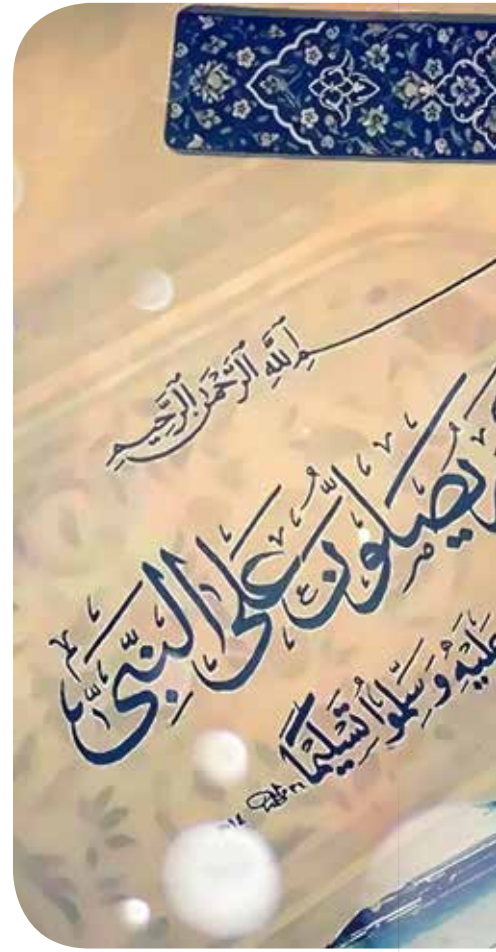 ـمِ اللهِ الرَّحْمٰنِ الرَّحِيمِ
يُصَلُّونَ عَلَى النَّبِيِّ
عَلَيْهِ وَسَلِّمُوا تَسْلِيمًا